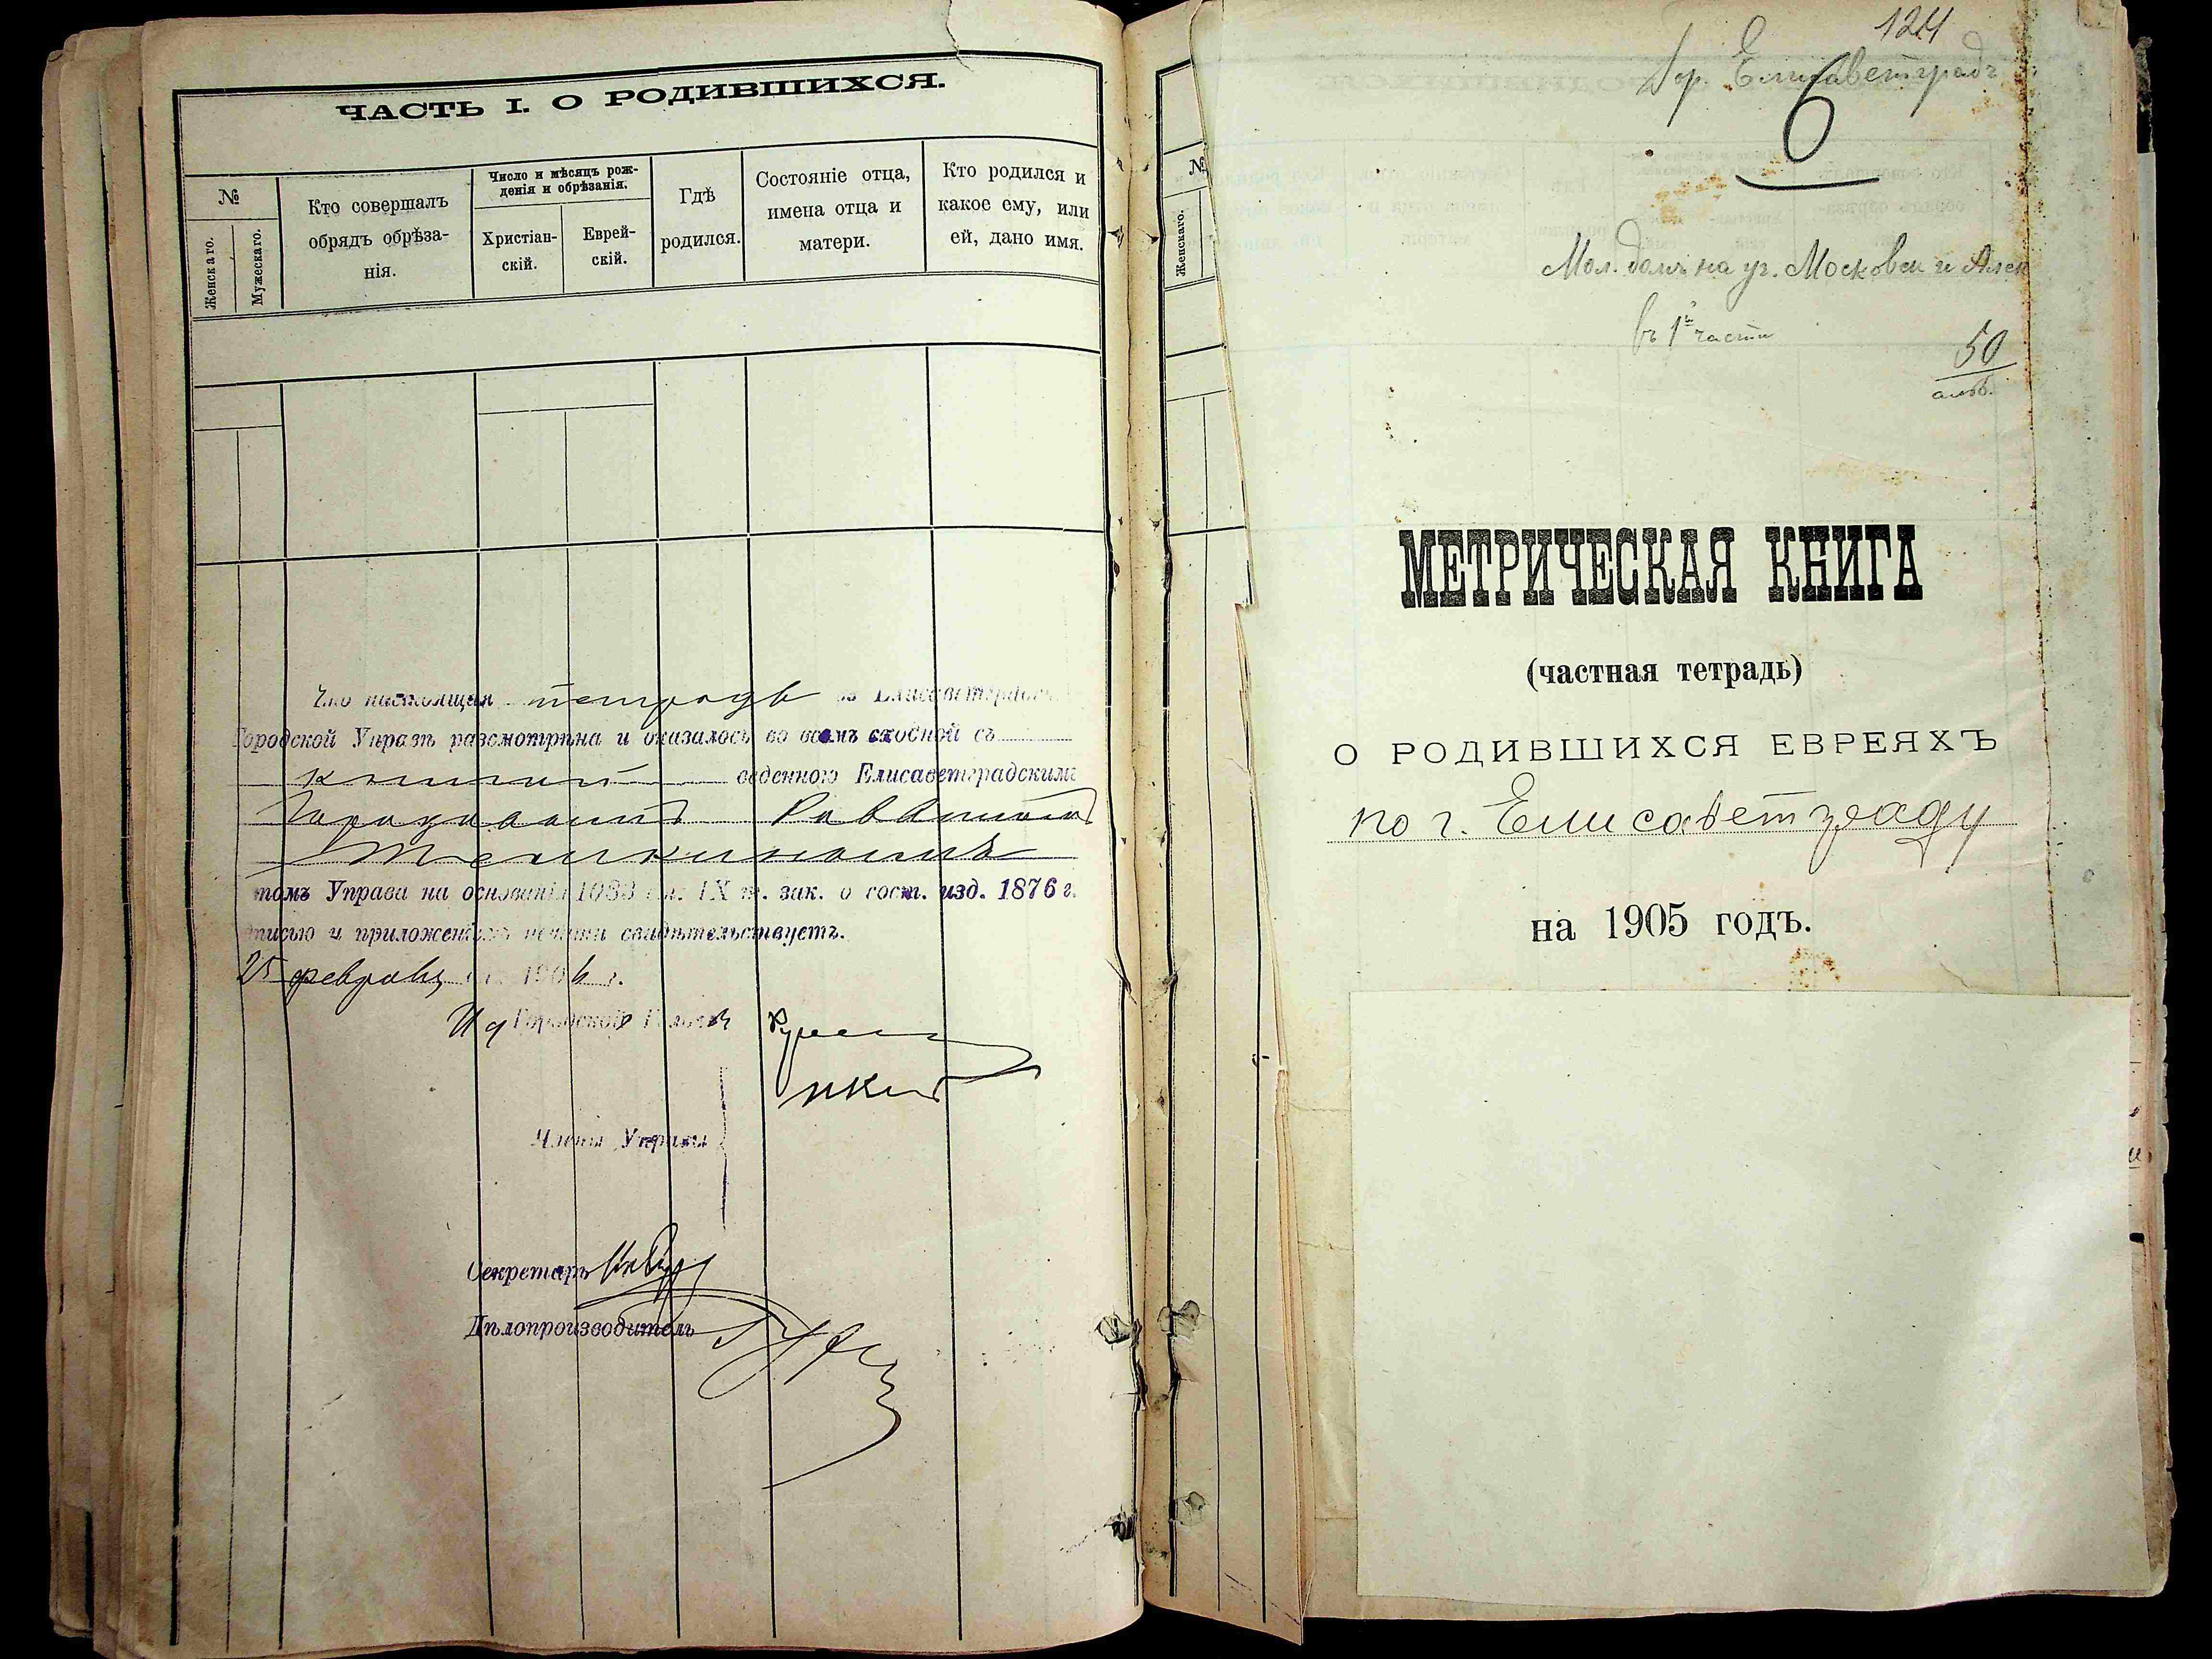 ЧАСТЬ I. О РОДИВШИХСЯ.
№
Женскаго.
Мужескаго.
Кто совершалъ
обрядъ обрѣза-
нія.
Число и мѣсяцъ рож-
денія и обрѣзанія.
Христіан-
скій.
Еврей-
скій.
Гдѣ
родился.
Состояніе отца,
имена отца и
матери.
Кто родился и
какое ему, или
ей, дано имя.
Что настоящая тетрадь въ Елисаветградск
Городской Управѣ разсмотрѣна и оказалось во всемъ сходной съ
книгой веденною Елисаветградскимъ
Городовымъ Раввиномъ
Темкинымъ
томъ Управа на основаніи 1083 ст. IX т. зак. о сост. изд. 1876 г.
писью и приложеніемъ печати свидѣтельствуетъ.
25 февраля 1906 г.
И д Городской Голова
Члены Управы
Секретарь
Дѣлопроизводитель
№
Женскаго.
124
гор. Елисаветградъ
6
Мол. домъ на уг. Московск и Алек
въ 1й части
50
МЕТРИЧЕСКАЯ КНИГА
(частная тетрадь)
О РОДИВШИХСЯ ЕВРЕЯХЪ
по г. Елисаветграду
на 1905 годъ.